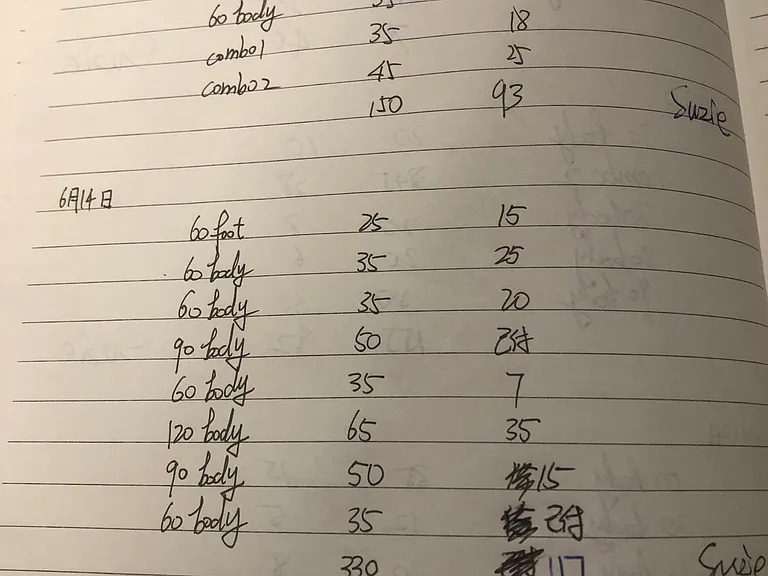 60 body 35
combo1 35 18
combo2 45 25
150 93
Suzie
6月14日
60 foot 25 15
60 body 35 25
60 body 35 20
90 body 50 已付
60 body 35 7
120 body 65 35
90 body 50 15
60 body 35 已付
330 117
Suzie